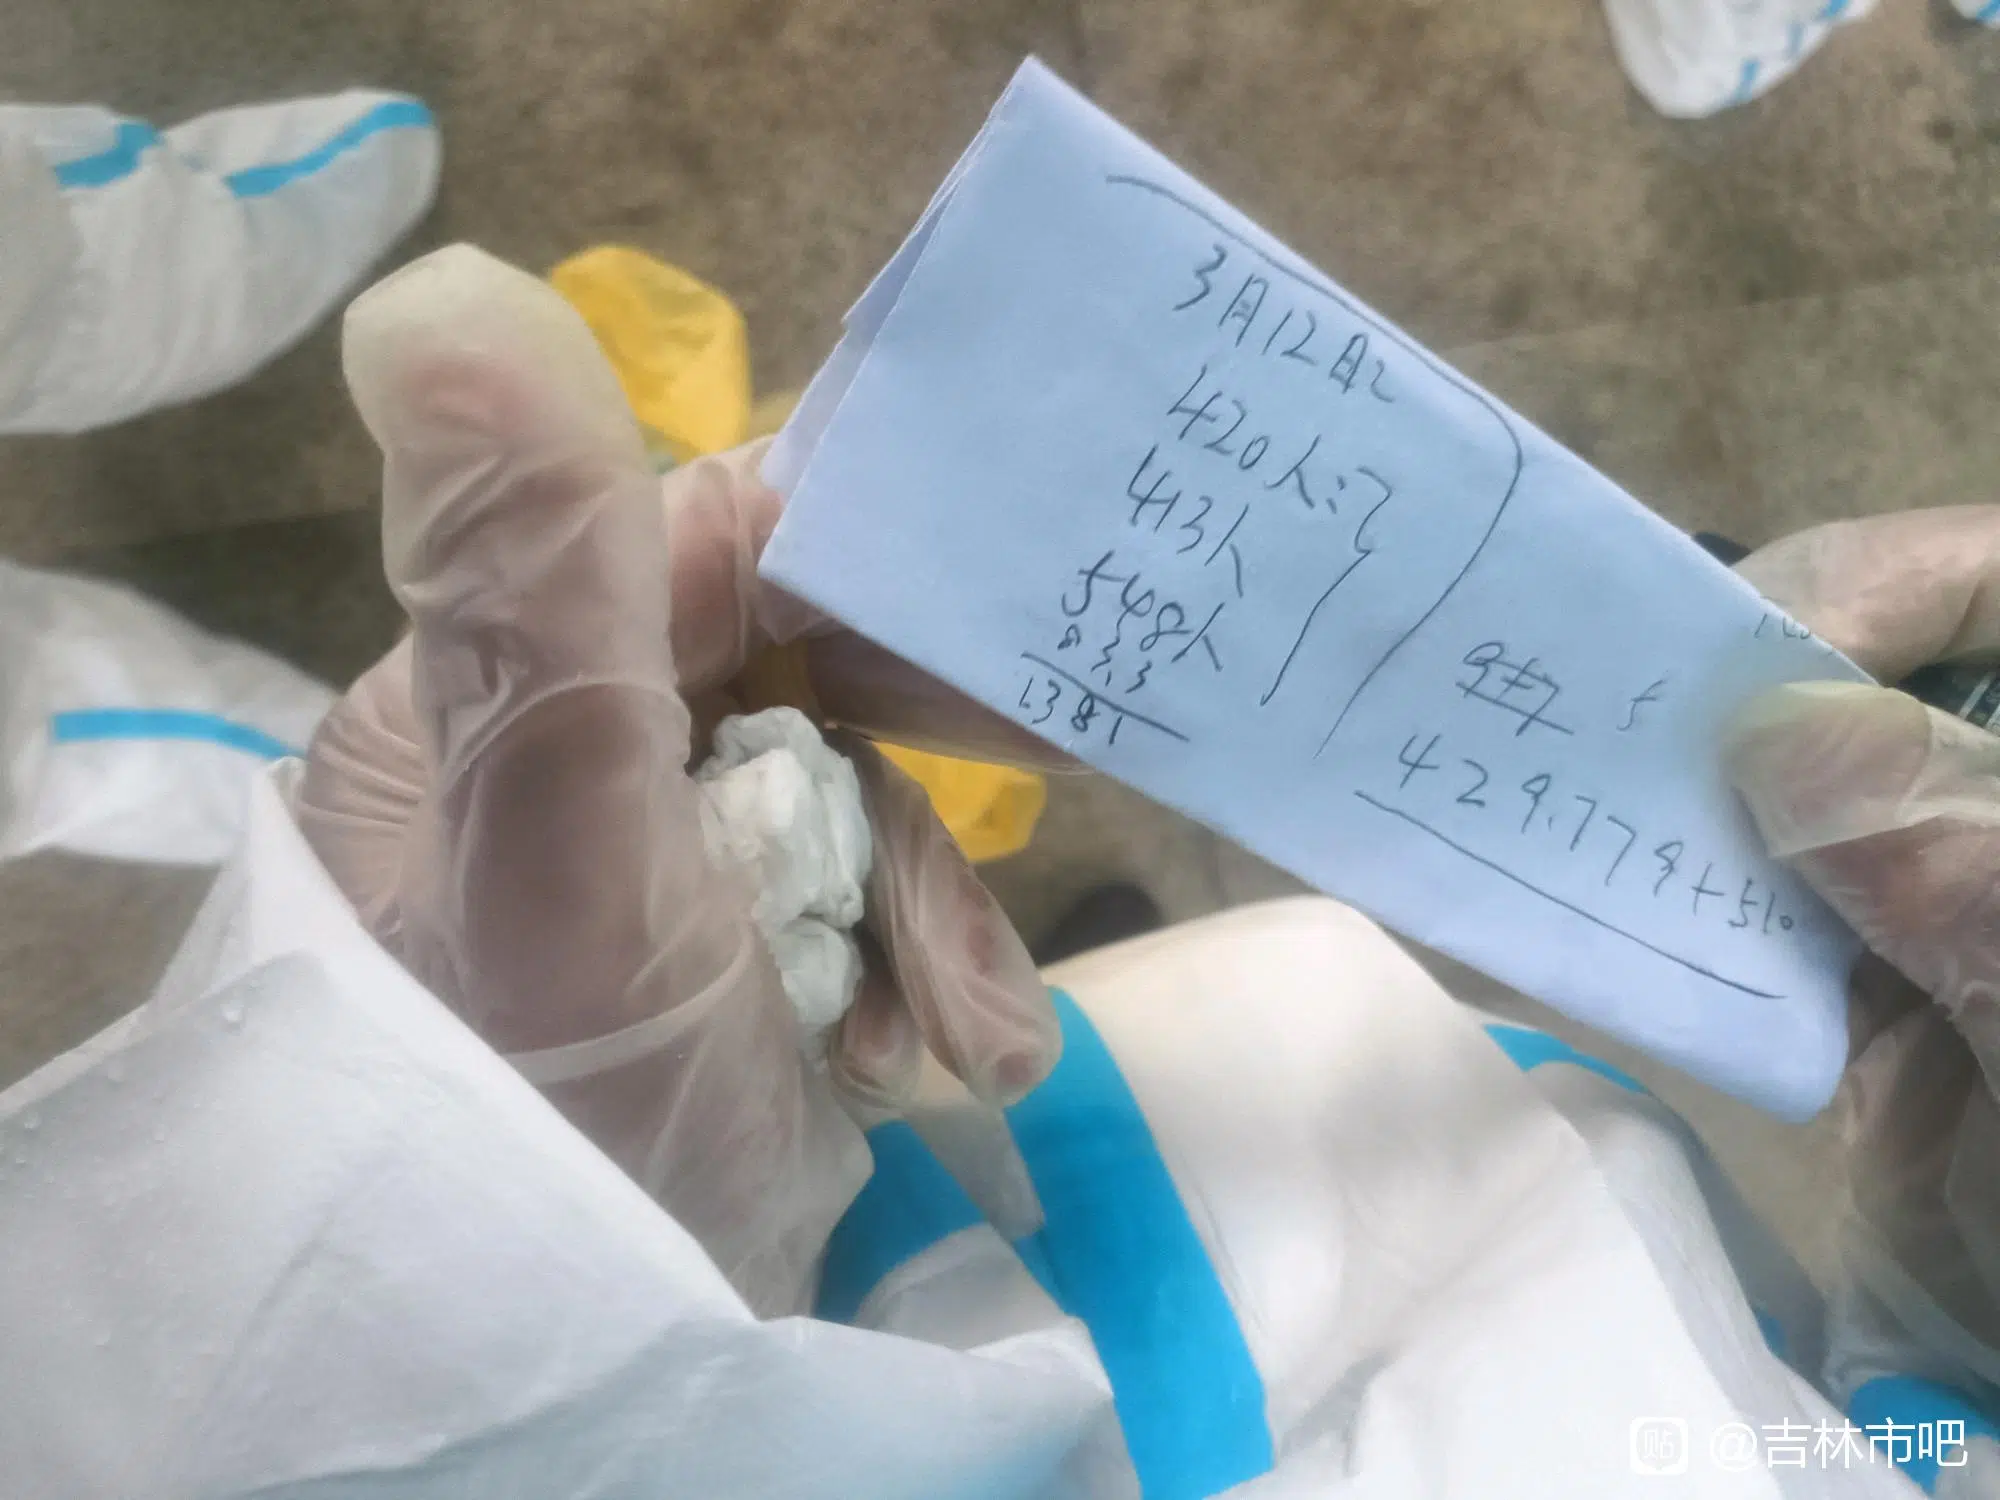 3月12日
420人
413人
548人
833
1381
5
429.779+510
贴 @吉林市吧